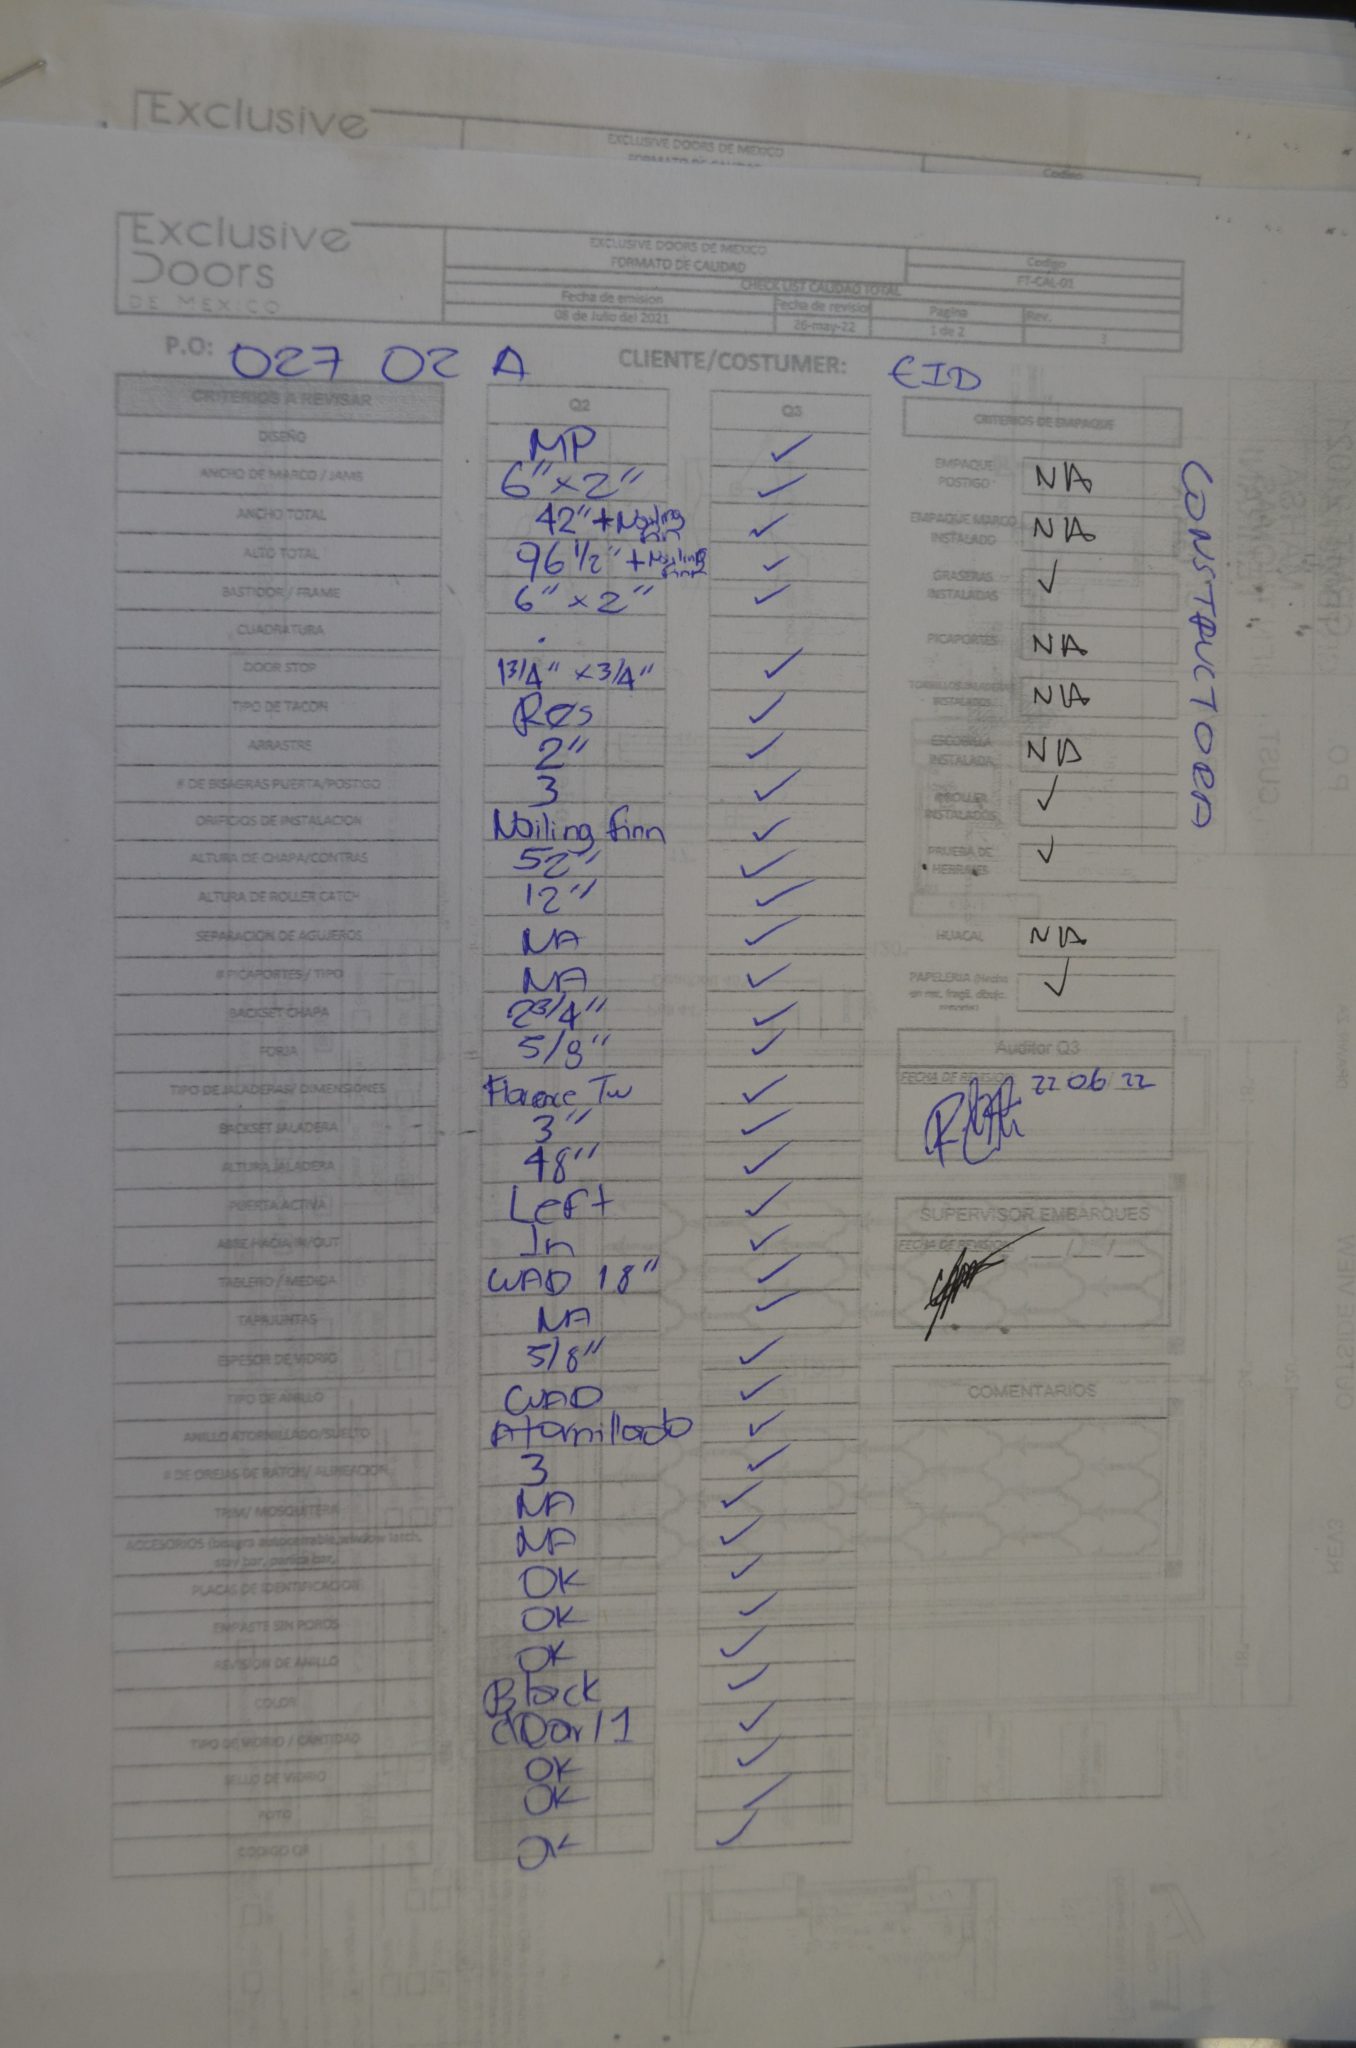 Exclusive
EXCLUSIVE DOORS DE MEXICO
Codigo
Exclusive
Doors
DE MEXICO
EXCLUSIVE DOORS DE MEXICO
FORMATO DE CALIDAD
Codigo
FT-CAL-01
CHECK LIST CALIDAD TOTAL
Fecha de emision
Fecha de revision
Pagina
Rev.
08 de Julio del 2021
26-may-22
1 de 2
P.O: 027 02 A CLIENTE/COSTUMER: EID
CONSTRUCTORA
CRITERIOS A REVISAR Q2 Q3
DISEÑO MP ✓
ANCHO DE MARCO / JAMB 6" x 2" ✓
ANCHO TOTAL 42" + Nailing finn ✓
ALTO TOTAL 96 1/2" + Nailing finn ✓
BASTIDOR / FRAME 6" x 2" ✓
CUADRATURA .
DOOR STOP 1 3/4" x 3/4" ✓
TIPO DE TACON Res ✓
ARRASTRE 2" ✓
# DE BISAGRAS PUERTA/POSTIGO 3 ✓
ORIFICIOS DE INSTALACION Nailing finn ✓
ALTURA DE CHAPA/CONTRAS 52" ✓
ALTURA DE ROLLER CATCH 12" ✓
SEPARACION DE AGUJEROS NA ✓
# PICAPORTES / TIPO NA ✓
BACKSET CHAPA 2 3/4" ✓
FORJA 5/8" ✓
TIPO DE JALADERAS/ DIMENSIONES Tw ✓
BACKSET JALADERA 3" ✓
ALTURA JALADERA 48" ✓
PUERTA ACTIVA Left ✓
ABRE HACIA IN/OUT In ✓
TABLERO / MEDIDA CUAD 18" ✓
TAPAJUNTAS NA ✓
ESPESOR DE VIDRIO 5/8" ✓
TIPO DE ANILLO CUAD ✓
ANILLO ATORNILLADO/SUELTO Atornillado ✓
# DE OREJAS DE RATON/ ALINEACION 3 ✓
TRIM/ MOSQUITERA NA ✓
ACCESORIOS (bisagra autocerrable, window latch, stay bar, panica bar, NA ✓
PLACAS DE IDENTIFICACION OK ✓
EMPASTE SIN POROS OK ✓
REVISION DE ANILLO OK ✓
COLOR Black ✓
TIPO DE VIDRIO / CANTIDAD / 1 ✓
SELLO DE VIDRIO OK ✓
FOTO OK ✓
CODIGO QR OK ✓
CRITERIOS DE EMPAQUE
EMPAQUE POSTIGO NA
EMPAQUE MARCO INSTALADO NA
GRASERAS INSTALADAS ✓
PICAPORTES NA
TORNILLOS JALADERAS INSTALADOS NA
ESCOBILLA INSTALADA NA
ROLLER INSTALADOS ✓
PRUEBA DE HERRAJES ✓
HUACAL NA
PAPELERIA ✓
Auditor Q3
FECHA DE REVISION 22 06 22
SUPERVISOR EMBARQUES
FECHA DE REVISION: __/__/__
COMENTARIOS